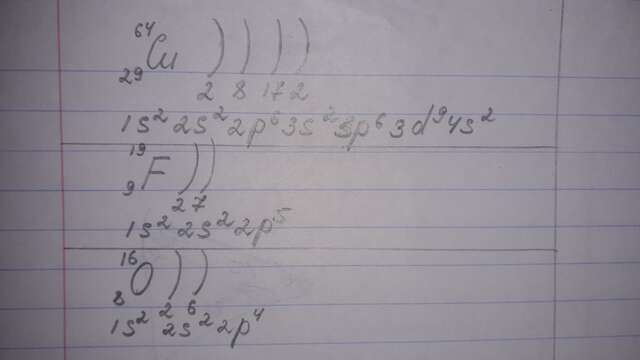 ⁶⁴₂₉Cu ) ) ) )
2 8 17 2
1s² 2s² 2p⁶ 3s² 3p⁶ 3d⁹ 4s²
¹⁹₉F ) )
2 7
1s² 2s² 2p⁵
¹⁶₈O ) )
2 6
1s² 2s² 2p⁴